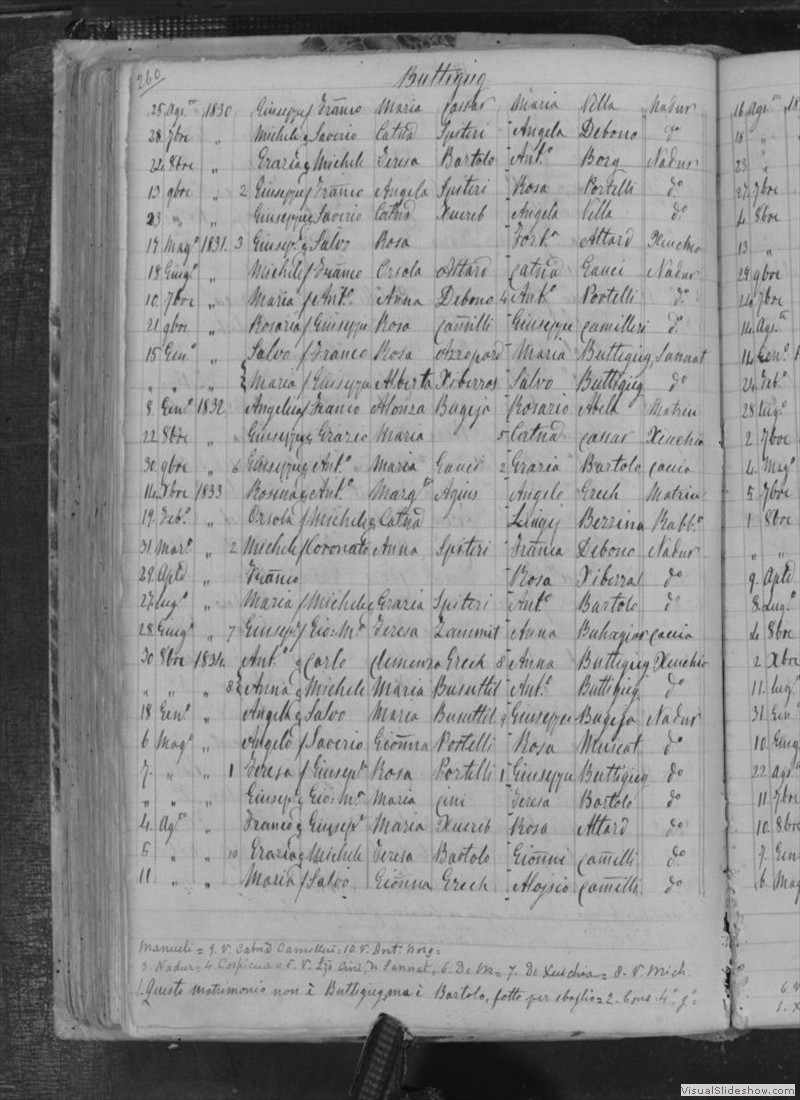 260
Buttigieg
25 Ags.to 1830 Giuseppe f Franco Maria Cassar Maria Vella Nadur
28 7bre " Michele g Saverio Catnd Spiteri Angela Debono do
24 8bre " Grazia g Michele Teresa Bartolo Ant.o Borg Nadur
13 9bre " 2 Giuseppe f Franco Angela Spiteri Rosa Portelli do
23 " " Giuseppe g Saverio Catnd Xuereb Angela Vella do
17 Mag.o 1831 3 Giusep.e g Salvo Rosa Fort.a Attard Xeuchia
18 Giug.o " Michele f Franco Orsola Attard Catnd Gauci Nadur
10 7bre " Maria f Ant.o Anna Debono 4 Ant.o Portelli do
21 9bre " Rosaria f Giuseppe Rosa Camilli Giuseppe Camilleri do
15 Gen.o " Salvo f Franco Rosa Azzopard Maria Buttigieg Sannat
" " " Maria f Giuseppe Alberta Xiberras Salvo Buttigieg do
8 Gen.o 1832 Angelica f Franco Alonza Bugeja Rosario Abela Matrice
22 8bre " Giuseppe g Grazio Maria 5 Catnd Cassar Xeuchia
30 9bre " 6 Giuseppe g Ant.o Maria Gauci 2 Grazia Bartolo Caccia
14 Xbre 1833 Rosina g Ant.o Marg.ta Agius Angelo Grech Matrice
19 Feb.o " Orsola f Michele g Catnd Luigi Bezzina Rabb.o
31 Mar.o " 2 Michele f Coronato Anna Spiteri Franca Debono Nadur
29 Aple " Franco Rosa Xiberras do
27 Lug.o " Maria f Michele g Grazia Spiteri Ant.o Bartolo do
28 Giug.o " 7 Giusep.e f Gio: M.a Teresa Zammit Anna Buhagiar Caccia
30 8bre 1834 Ant.o g Carlo Clemenza Grech 8 Anna Buttigieg Xeuchia
" " " 8 Anna g Michele Maria Busuttil Ant.o Buttigieg do
18 Gen.o " Angela g Salvo Maria Busuttil 9 Giuseppe Bugeja Nadur
6 Mag.o " Angelo f Saverio Gionna Portelli Rosa Muscat do
7 " " 1 Teresa f Giusep.e Rosa Portelli 1 Giuseppe Buttigieg do
" " " Giusep.e g Gio: M.a Maria Cini Teresa Bartolo do
4 Ag.to " Franco g Giusep.e Maria Xuereb Rosa Attard do
5 " " 10 Grazia g Michele Teresa Bartolo Gionni Camilli do
11 " " Maria f Salvo Gionna Grech Aloisio Camilli do
Manueli = 9. V. Catnd Camilleri = 10. V. Ant.o Borg =
3. Nadur = 4. Cospicua = 5. V. Cini, n Sannat, 6. De M = 7. De Xeuchia = 8. V. Mich.
1. Questo matrimonio non è Buttigieg, ma è Bartolo, fatto per sbaglio = 2. Cons. 4.o g.o
16 Ags.to 18
18 "
23 "
27 7bre
4 8bre
13 "
29 9bre
24 7bre
14 Ags.to
14 Gen.o
24 Feb.o
28 Lug.o
2 7bre
4 Mag.o
5 7bre
1 8bre
" "
9 Aple
8 Lug.o
4 8bre
2 Xbre
11 Lug.o
31 Gen.o
10 Giug
22 Ags.to
11 7bre
10 8bre
7 Gen
6 Mag
6. V
1. X
VisualSlideshow.com